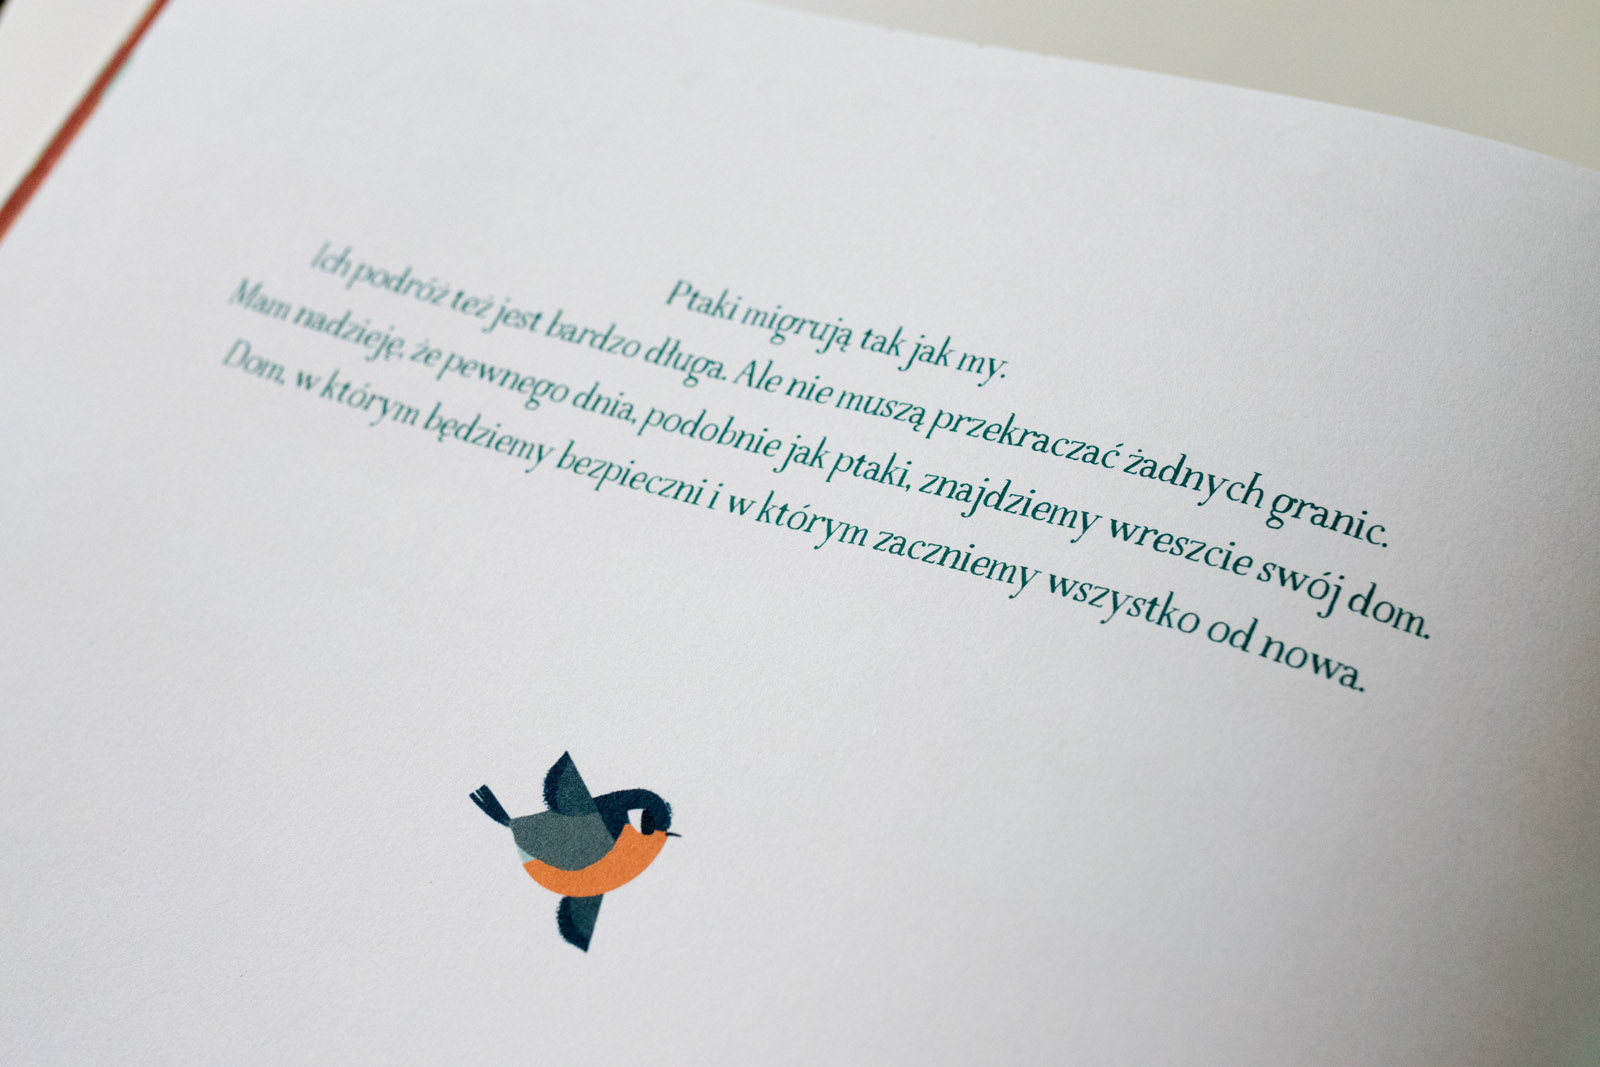 Ptaki migrują tak jak my.
Ich podróż też jest bardzo długa. Ale nie muszą przekraczać żadnych granic.
Mam nadzieję, że pewnego dnia, podobnie jak ptaki, znajdziemy wreszcie swój dom.
Dom, w którym będziemy bezpieczni i w którym zaczniemy wszystko od nowa.